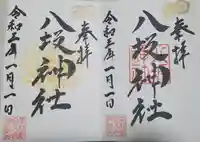 奉拝
八坂神社
令和三年一月一日
奉拝
八坂神社
令和 年一月一日